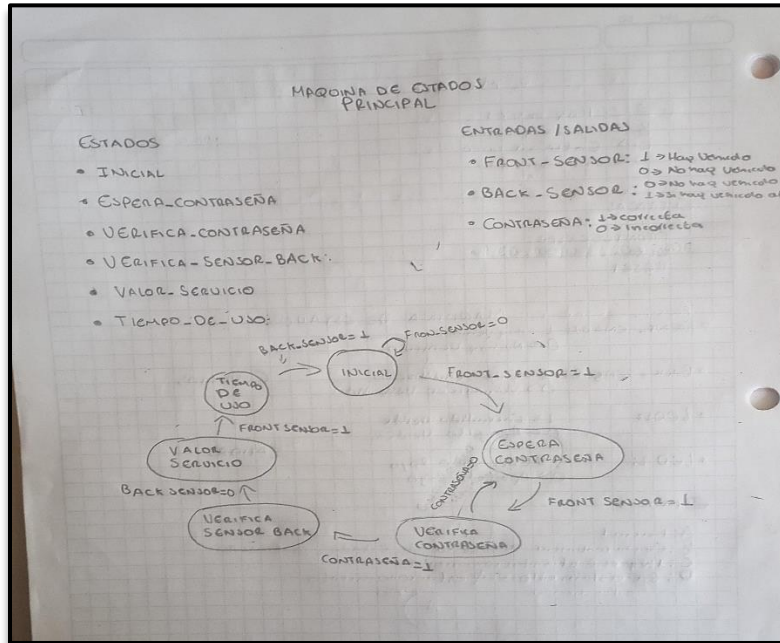 MAQUINA DE ESTADOS
PRINCIPAL
ESTADOS
• INICIAL
• ESPERA_CONTRASEÑA
• VERIFICA_CONTRASEÑA
• VERIFICA-SENSOR-BACK:
• VALOR_SERVICIO
• TIEMPO_DE_USO:
ENTRADAS / SALIDAS
• FRONT_SENSOR: 1 → Hay Vehiculo
0 → No hay vehiculo
• BACK_SENSOR: 0 → No hay vehiculo
1 → Si hay vehiculo
• CONTRASEÑA: 1 → correcta
0 → incorrecta
BACK_SENSOR = 1
FRON_SENSOR = 0
INICIAL
FRONT_SENSOR = 1
TIEMPO
DE
USO
FRONT SENSOR = 1
VALOR
SERVICIO
ESPERA
CONTRASEÑA
CONTRASEÑA=0
BACK SENSOR=0
FRONT SENSOR = 1
VERIFICA
SENSOR BACK
VERIFICA
CONTRASEÑA
CONTRASEÑA=1